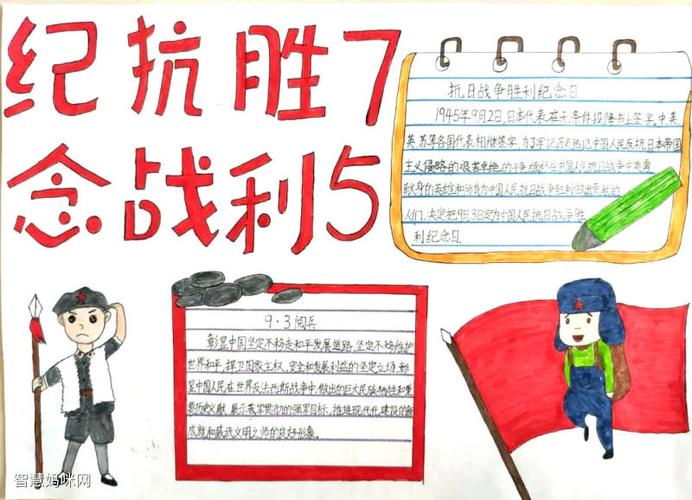 纪抗胜7
念战利5
抗日战争胜利纪念日
1945年9月2日,日本代表在无条件投降书上签字,中美
英苏等各国代表相继签字,为了牢记历史铭记中国人民反抗日本帝国
主义侵略的艰苦卓绝的斗争 缅怀在中国人民抗日战争中英勇
献身的英雄和所有为中国人民抗日战争胜利做出贡献的
人们,决定把9月3日定为中国人民抗日战争胜
利纪念日.
9·3阅兵
彰显中国坚定不移走和平发展道路,坚定不移维护
世界和平,捍卫国家主权,安全和发展利益的坚定立场,彰
显中国人民在世界反法西斯战争中,做出的巨大民族牺牲和重
要历史贡献,展示我军的强军目标,推进现代化建设的新
成就和威武文明之师的良好形象.
智慧妈咪网